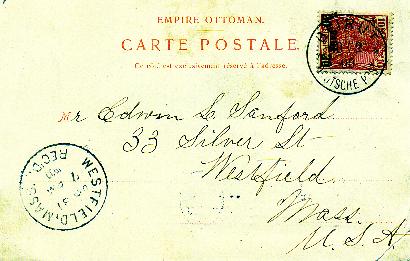 EMPIRE OTTOMAN.
CARTE POSTALE.
Ce côté est exclusivement réservé à l'adresse.
Mr Edwin L. Sanford
33 Silver St
Westfield
Mass.
U.S.A.
WESTFIELD, MASS.
REC'D.
10
10